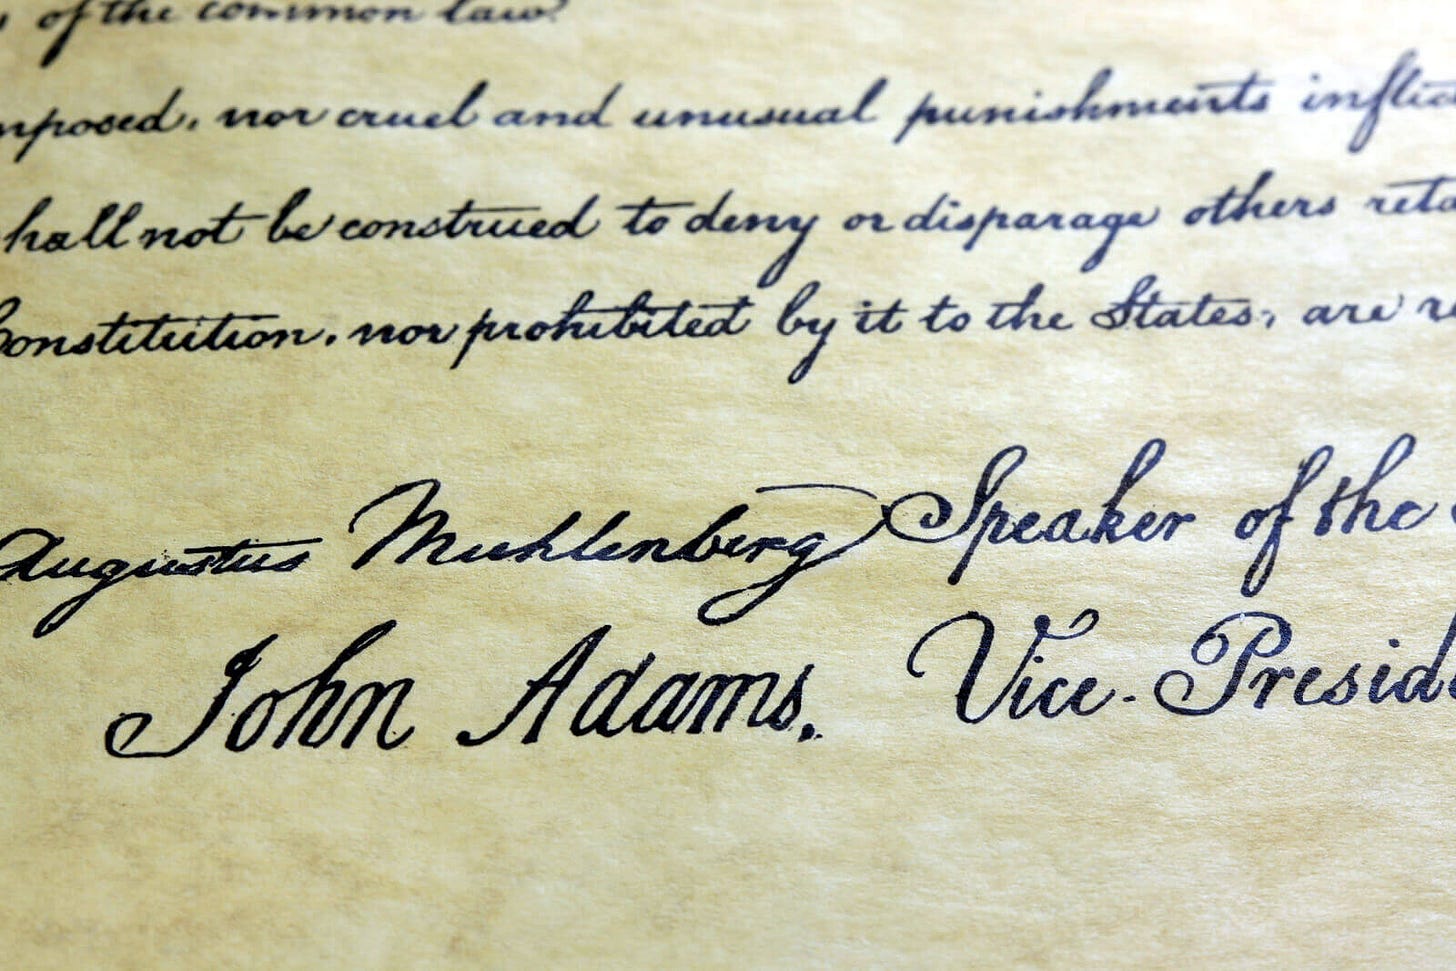 of the common law.
mposed, nor cruel and unusual punishments inflic
hall not be construed to deny or disparage others reta
Constitution, nor prohibited by it to the States, are r
Augustus Muhlenberg Speaker of the
John Adams. Vice-Preside